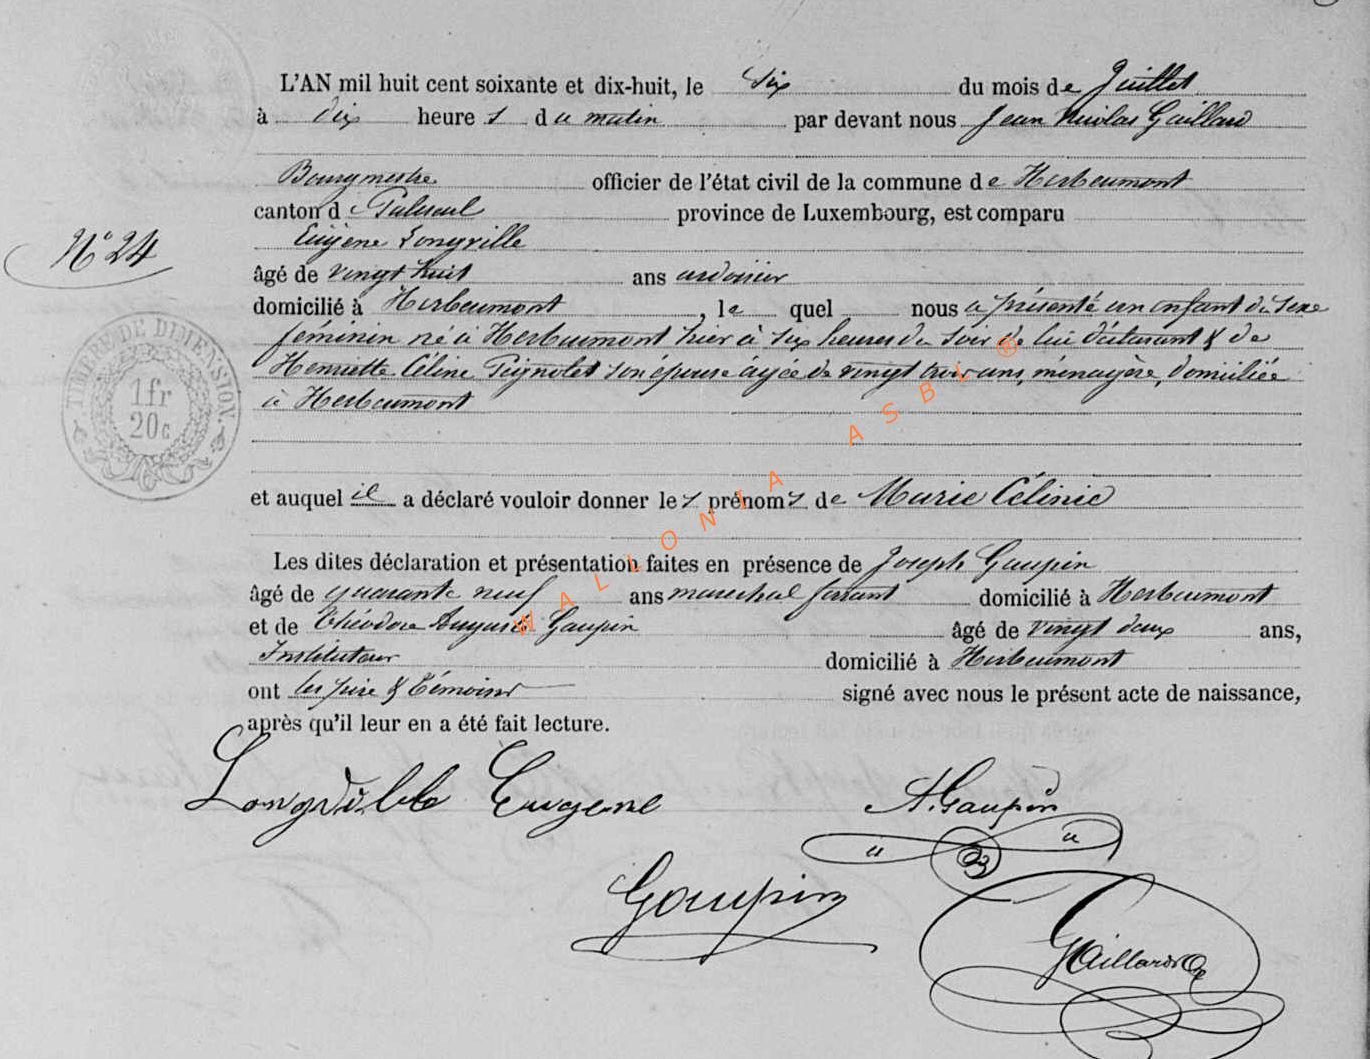 L'AN mil huit cent soixante et dix-huit, le six du mois de Juillet
à dix heures du matin par devant nous Jean Nicolas Gaillard
Bourgmestre officier de l'état civil de la commune de Herbeumont
canton de Paliseul province de Luxembourg, est comparu
Eugène Longville
N° 24
âgé de vingt huit ans ardoisier
domicilié à Herbeumont, le quel nous a présenté un enfant du sexe
féminin né à Herbeumont hier à six heures du soir de lui déclarant & de
Henriette Céline Pignolet son épouse âgée de vingt trois ans, ménagère, domiciliée
à Herbeumont
TIMBRE DE DIMENSION.
1fr
20c
et auquel il a déclaré vouloir donner les prénoms de Marie Célinie
Les dites déclaration et présentation faites en présence de Joseph Gaupin
âgé de quarante neuf ans maréchal ferrant domicilié à Herbeumont
et de Théodore Auguste Gaupin âgé de vingt deux ans,
Instituteur domicilié à Herbeumont
ont les père & témoins signé avec nous le présent acte de naissance,
après qu'il leur en a été fait lecture.
Longville Eugene A. Gaupin
Gaupin
Gaillard
WALLONIA ASBL ®